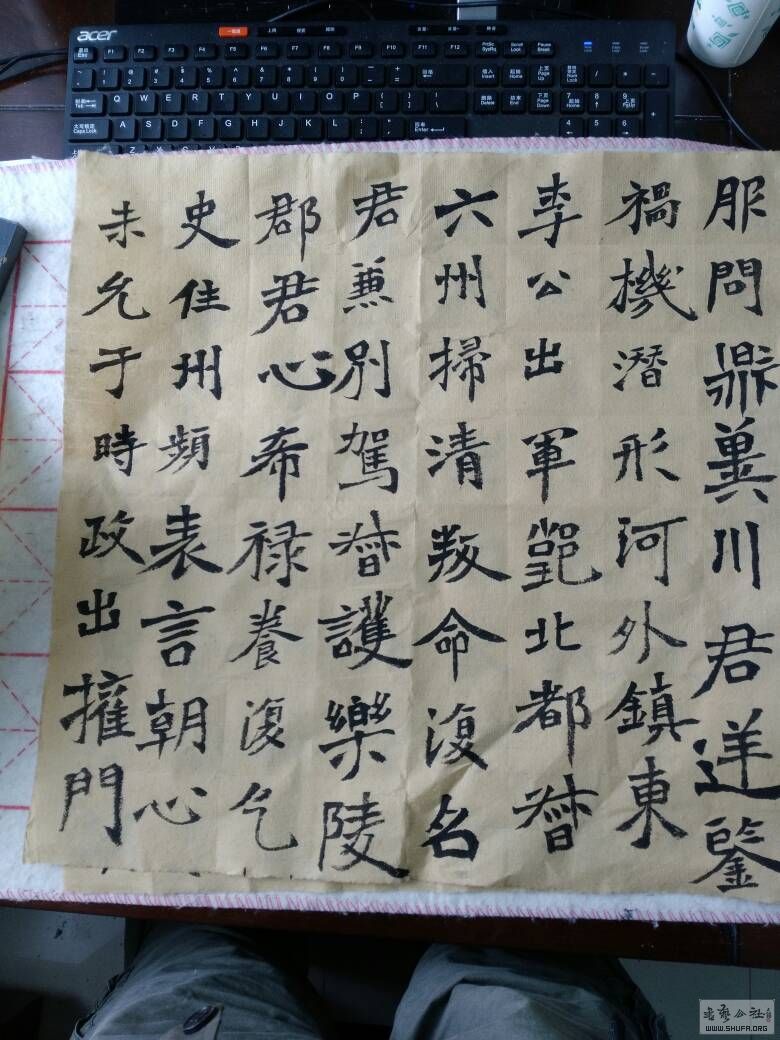 acer
服問鼎冀川君逆鑒
禍機潛形河外鎮東
李公出軍北都督
六州掃清叛命復名
君兼別駕督護樂陵
郡君心希禄養復乞
史住州頻表言朝心
未允于時政出擁門
书艺公社
WWW.SHUFA.ORG